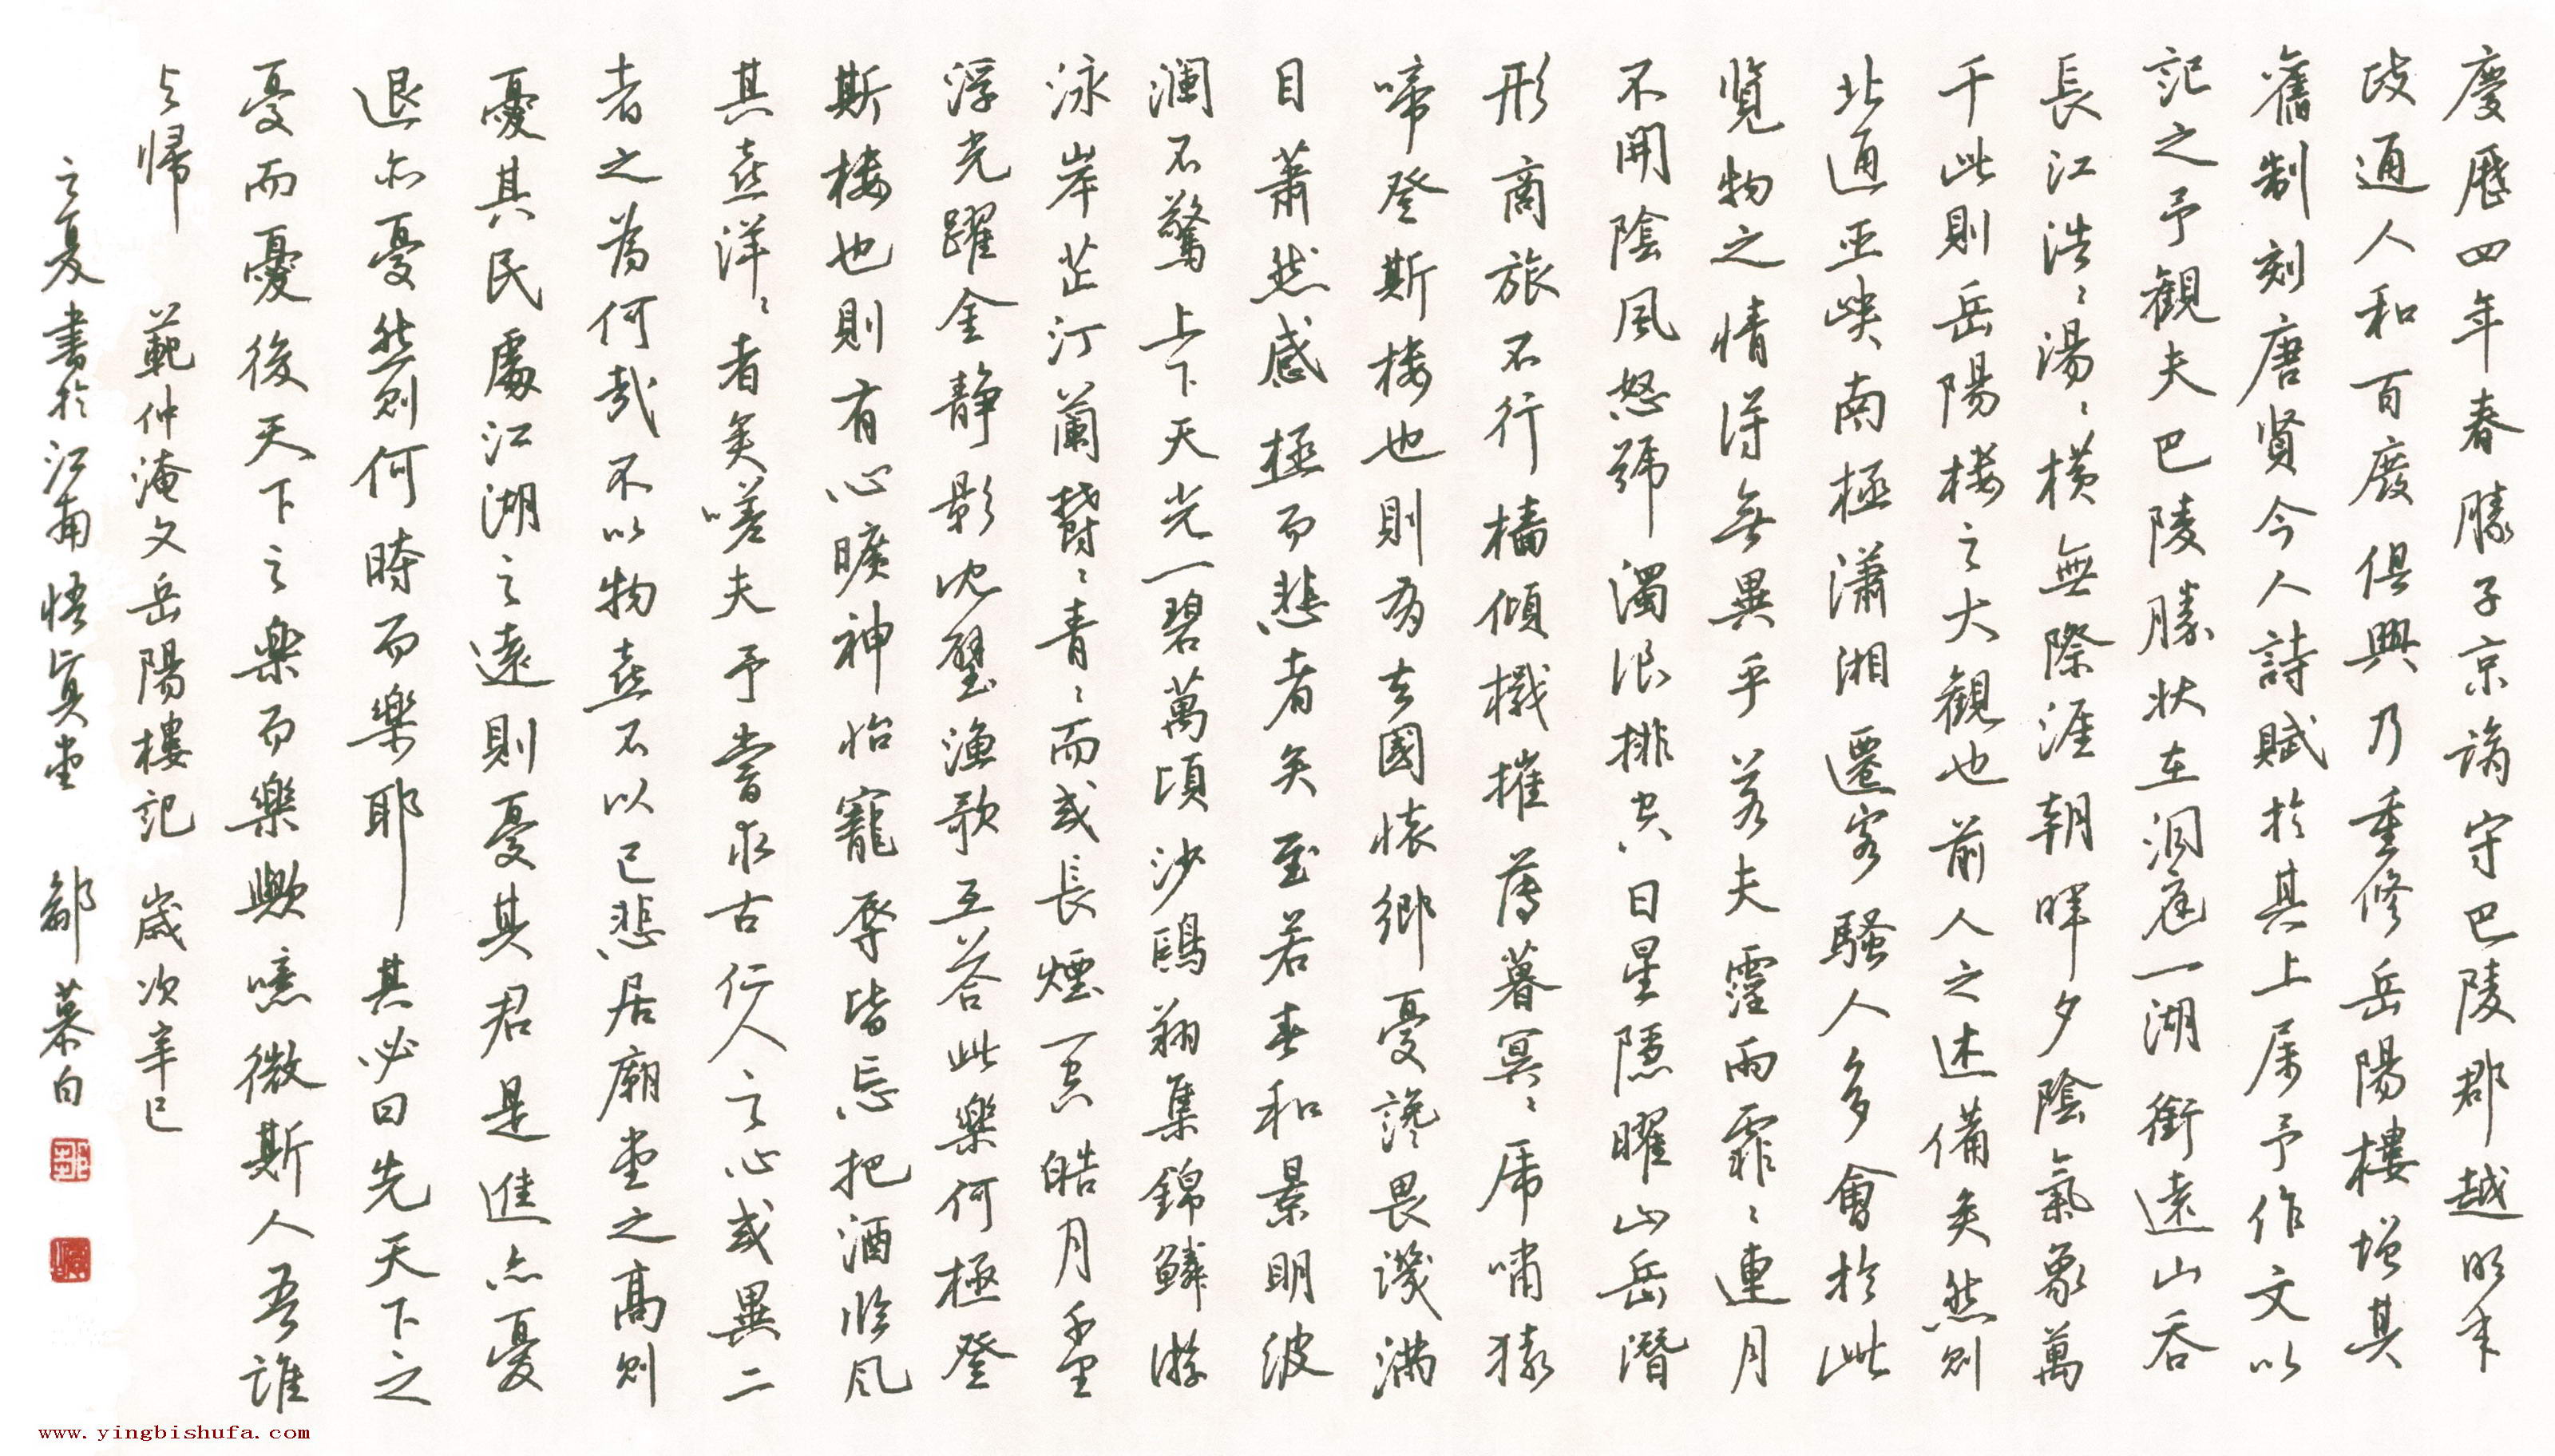 慶曆四年春滕子京謫守巴陵郡越明年
政通人和百廢俱興乃重修岳陽樓增其
舊制刻唐賢今人詩賦於其上屬予作文以
記之予觀夫巴陵勝狀在洞庭一湖銜遠山吞
長江浩〻湯〻橫無際涯朝暉夕陰氣象萬
千此則岳陽樓之大觀也前人之述備矣然則
北通巫峽南極瀟湘遷客騷人多會於此
覽物之情得無異乎若夫霪雨霏〻連月
不開陰風怒號濁浪排空日星隱曜山岳潛
形商旅不行檣傾檝摧薄暮冥〻虎嘯猿
啼登斯樓也則有去國懷鄉憂讒畏譏滿
目蕭然感極而悲者矣至若春和景明波
瀾不驚上下天光一碧萬頃沙鷗翔集錦鱗游
泳岸芷汀蘭鬱〻青〻而或長煙一空皓月千里
浮光躍金靜影沈璧漁歌互答此樂何極登
斯樓也則有心曠神怡寵辱皆忘把酒臨風
其喜洋〻者矣嗟夫予嘗求古仁人之心或異二
者之為何哉不以物喜不以己悲居廟堂之高則
憂其民處江湖之遠則憂其君是進亦憂
退亦憂然則何時而樂耶其必曰先天下之
憂而憂後天下之樂而樂歟噫微斯人吾誰
与歸 範仲淹文岳陽樓記 歲次辛巳
之夏書於江南悟真堂 鄒慕白
www.yingbishufa.com